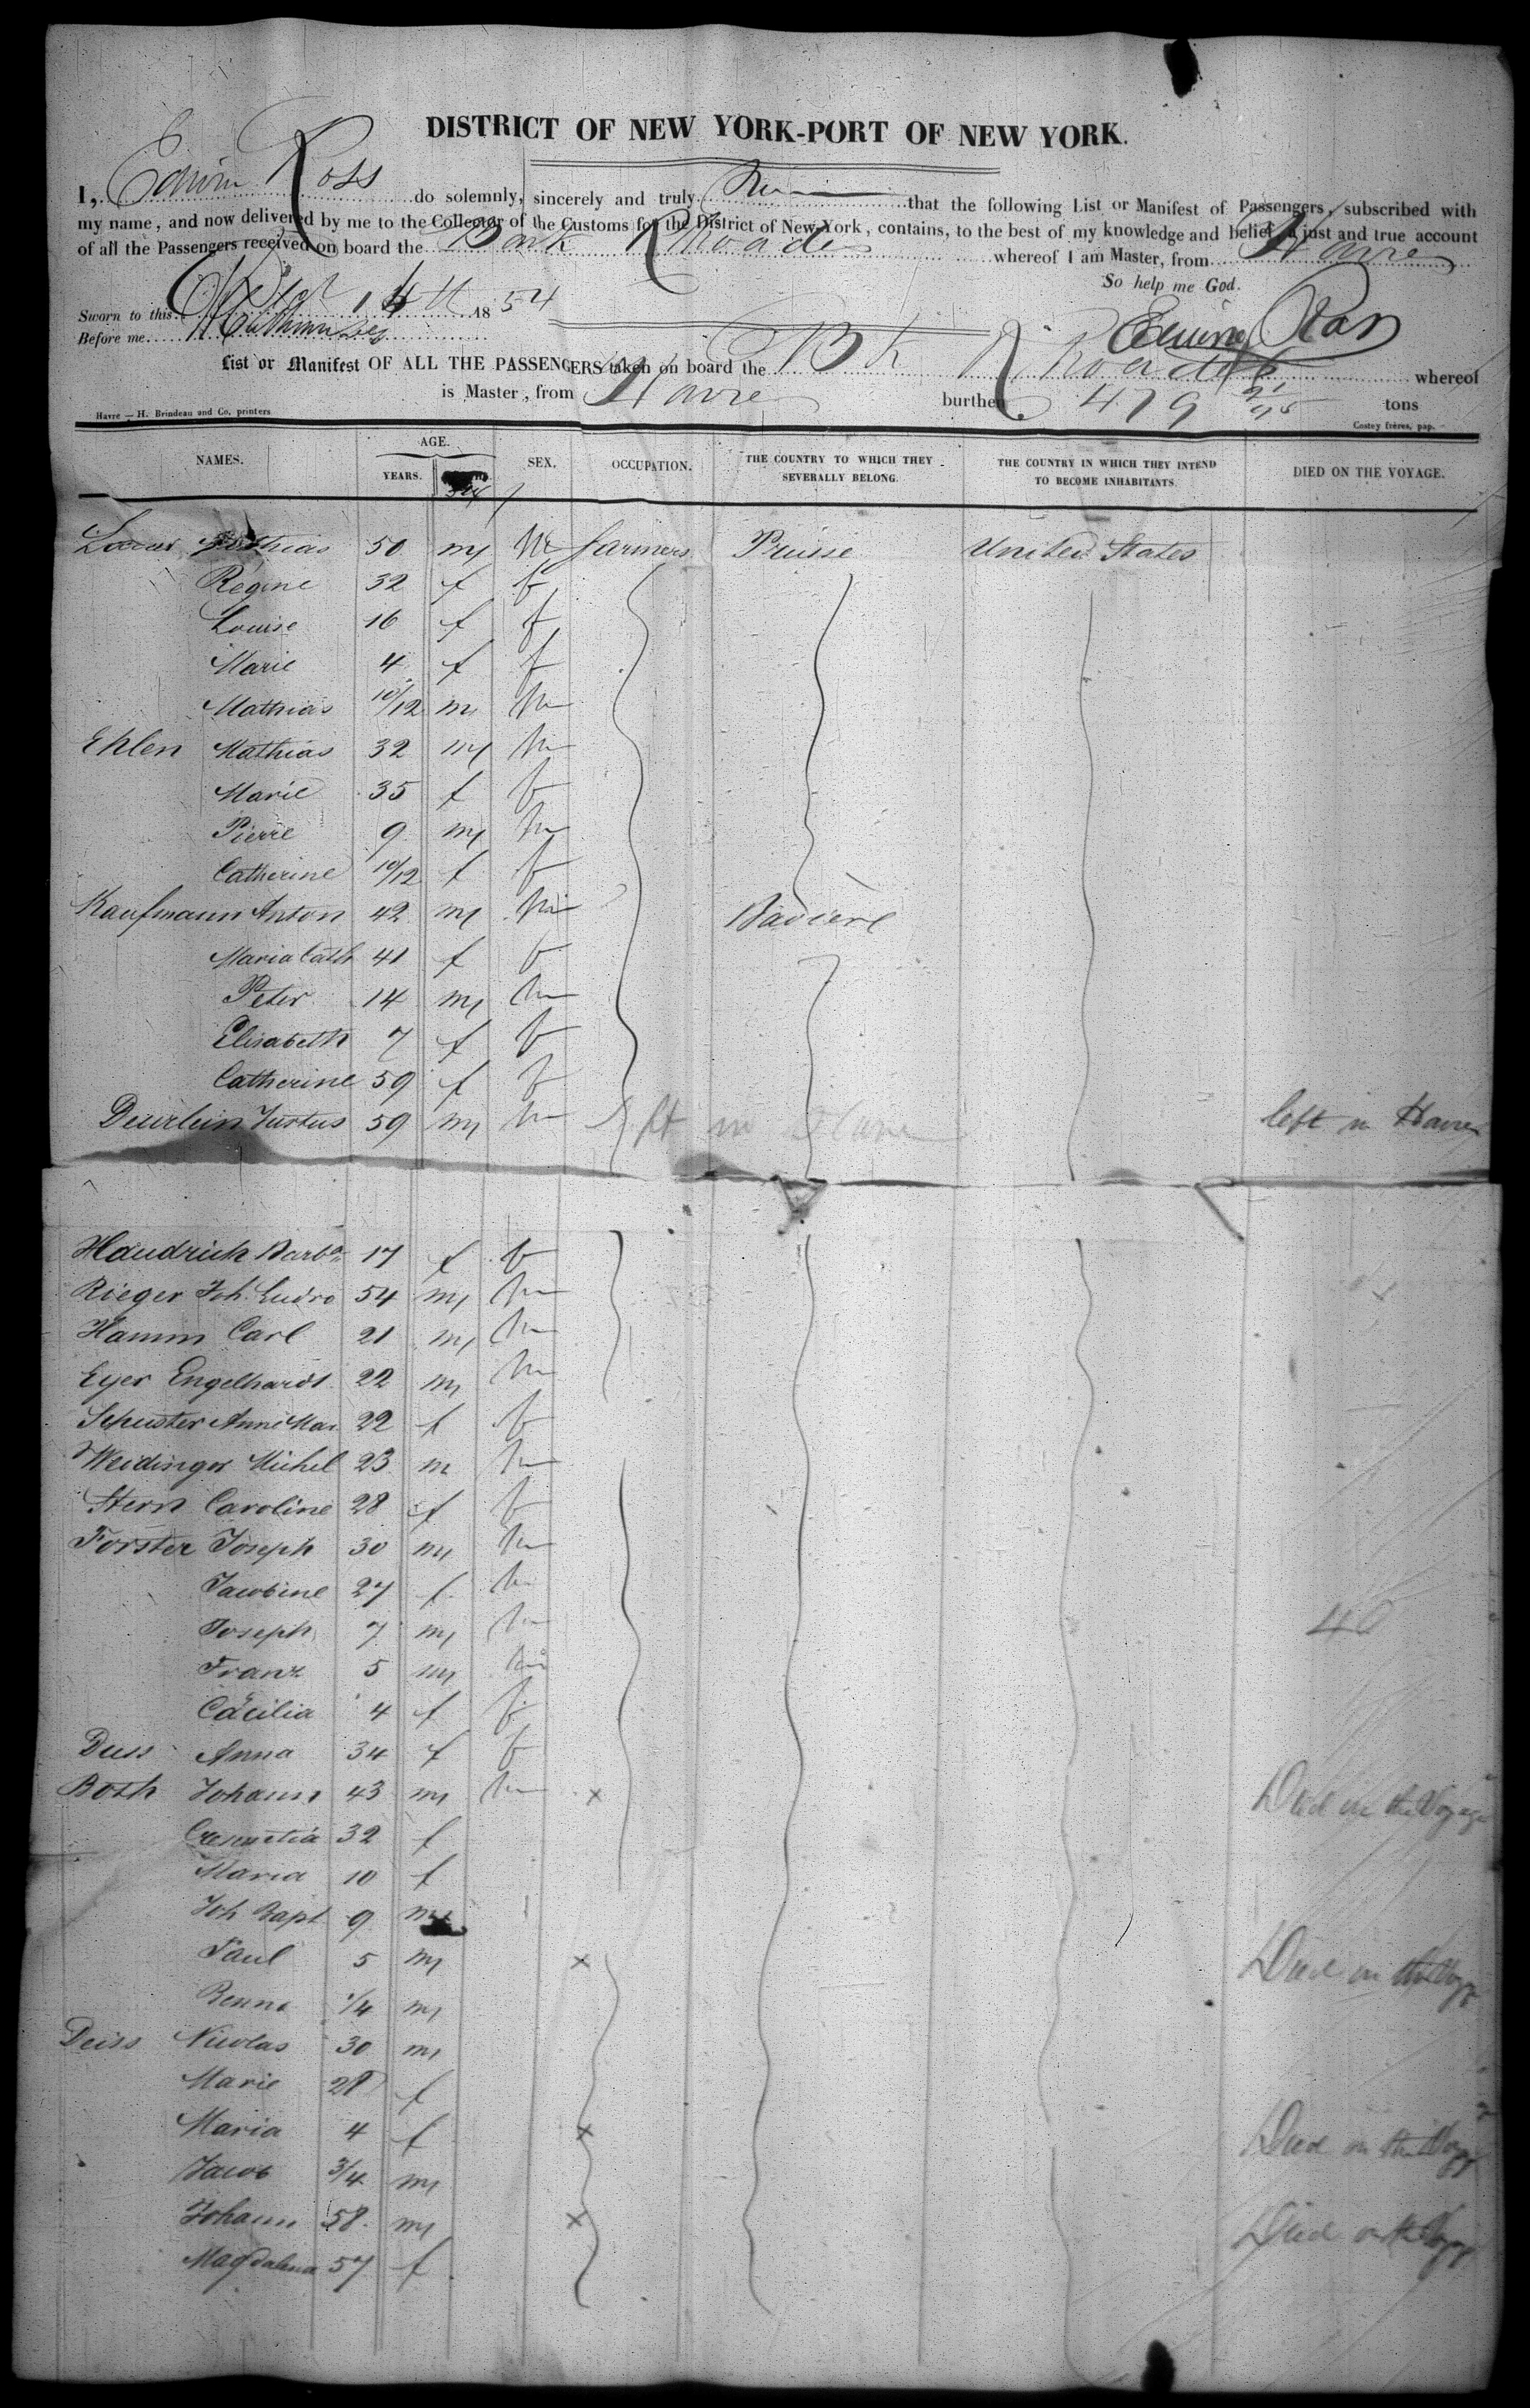 DISTRICT OF NEW YORK-PORT OF NEW YORK.
I, Edwin Ross do solemnly, sincerely and truly that the following List or Manifest of Passengers, subscribed with
my name, and now delivered by me to the Collector of the Customs for the District of New-York, contains, to the best of my knowledge and belief, a just and true account
of all the Passengers received on board the Bark Rhoades whereof I am Master, from Havre
So help me God.
Sworn to this Sept 14th 1854
Before me
Edwin Ross
List or Manifest OF ALL THE PASSENGERS taken on board the Bk whereof
is Master, from Havre burthen 479 tons
Havre — H. Brindeau and Co, printers
Costey frères, pap.
NAMES. AGE. SEX. OCCUPATION. THE COUNTRY TO WHICH THEY SEVERALLY BELONG. THE COUNTRY IN WHICH THEY INTEND TO BECOME INHABITANTS. DIED ON THE VOYAGE.
YEARS.
50 m m farmers Prusse United States
Regine 32 f f
Louise 16 f f
Marie 4 f f
Mathias 10/12 m m
Ehlen Mathias 32 m m
Marie 35 f f
Pierre 9 m m
Catherine 10/12 f f
Kaufmann Anton 42 m m Baviere
Maria Cath 41 f f
Peter 14 m m
Elisabeth 7 f f
Catherine 59 f f
Deurlein Justus 59 m m left in Havre left in Havre
Haudrich Barba 17 f f
Rieger Joh. Ludw 54 m m
Hamm Carl 21 m m
Eyer Engelhardt 22 m m
Schuster Anne Mar 22 f f
Weidinger Michel 23 m m
Stern Caroline 28 f f
Forster Joseph 30 m m
Jacobine 27 f m
Joseph 7 m m
40
Franz 5 m m
Cäcilia 4 f f
Duss Anna 34 f f
Both Johann 43 m m x Died on the Voyage
32 f
Maria 10 f
Joh Bapt 9 m
Paul 5 m x Died on the Voyg
1/4 m
Deiss Nicolas 30 m
Marie 28 f
Maria 4 f x Died on the Voyg
Jacob 3/4 m
Johann 58 m x Died on the Voyg
Magdalena 57 f